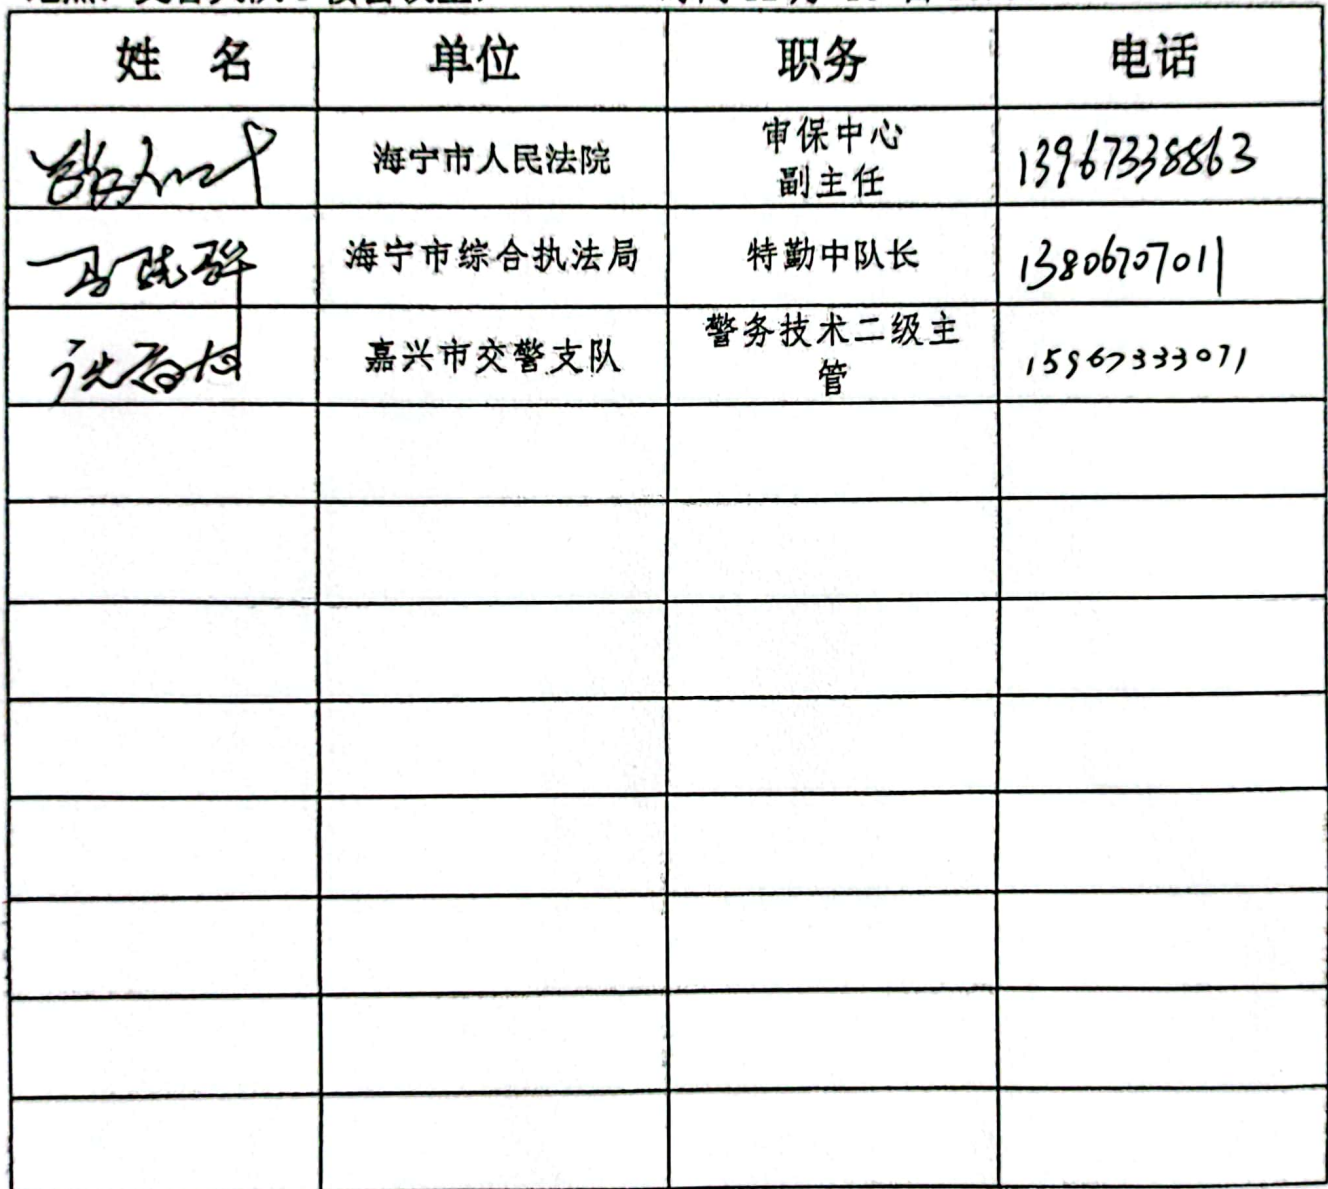 姓 名 单位 职务 电话
海宁市人民法院 审保中心 13967338863
副主任
海宁市综合执法局 特勤中队长 13806707011
嘉兴市交警支队 警务技术二级主 15967333071
管